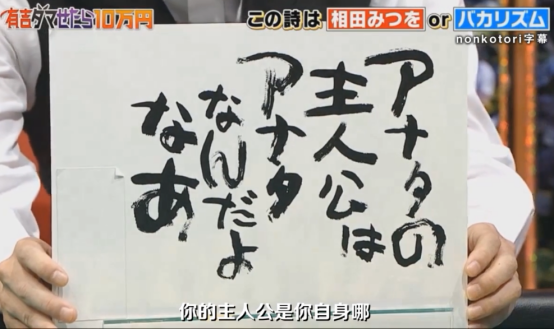 有吉ダマせたら10万円
この詩は 相田みつを or バカリズム
nonkotori字幕
アナタの
主人公は
アナタ
なんだよ
なあ
你的主人公是你自身哪